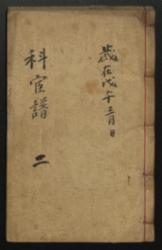 歲在戊午三月日
科宦譜 二